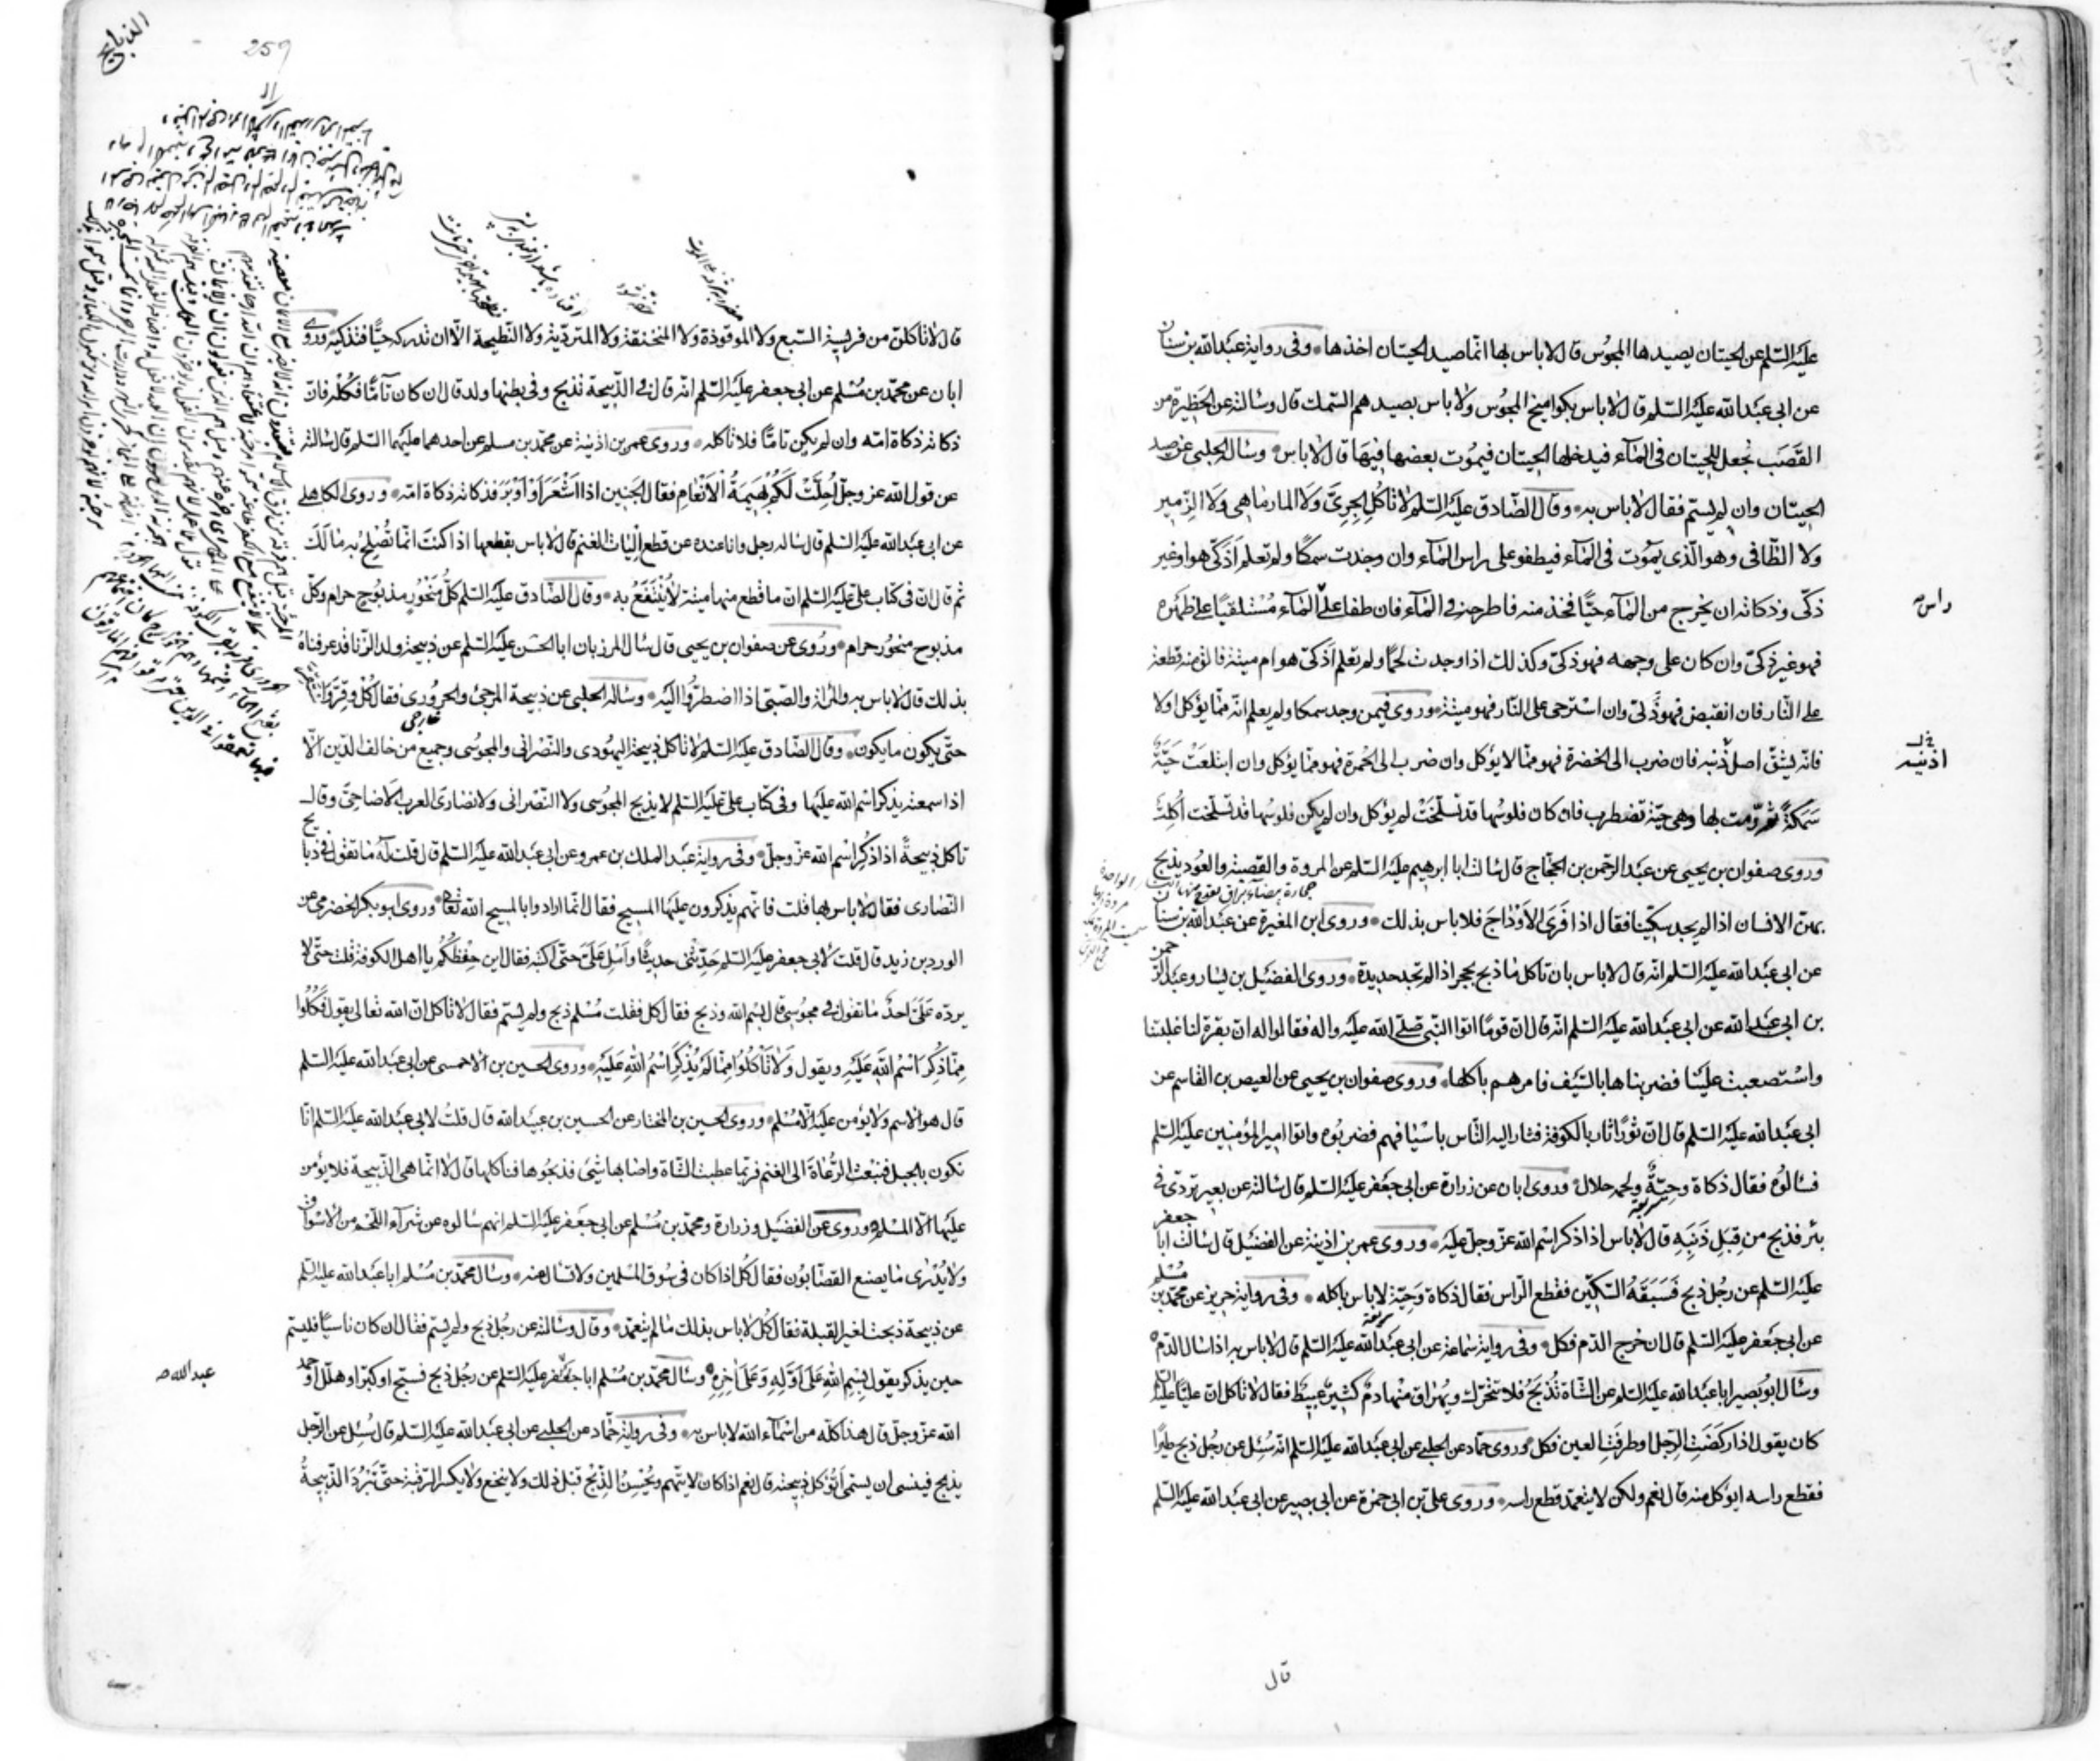 عليه السلم عن الحيتان يصيدها المجوس قال لا باس بها انما صيد الحيتان اخذها وفى رواية عبدالله بن سنان
عن ابى عبدالله عليه السلم قال لا باس بكواميخ المجوس ولا باس بصيدهم السمك قال وسالته عن الحظيرة من
القصب تجعل للحيتان فى الماء فيدخلها الحيتان فيموت بعضها فيها قال لا باس وساله الحلبى عن صيد
الحيتان وان لم يسم فقال لا باس به وقال الصادق عليه السلم لا تاكل الجرى ولا المارماهى ولا الزمير
ولا الطافى وهو الذى يموت فى الماء فيطفو على راس الماء وان وجدت سمكا ولم تعلم اذكى هو او غير
ذكى وذكاته ان يخرج من الماء حيا فخذ منه فاطرحه فى الماء فان طفا على الماء مستلقيا على ظهره
راس
فهو غير ذكى وان كان على وجهه فهو ذكى وكذلك اذا وجدت لحما ولم تعلم اذكى هو ام ميتة فالق منه قطعة
على النار فان انقبض فهو ذكى وان استرخى على النار فهو ميتة وروى فيمن وجد سمكا ولم يعلم انه مما يؤكل او لا
فانه يشق اصل ذنبه فان ضرب الى الخضرة فهو مما لا يؤكل وان ضرب الى الحمرة فهو مما يؤكل وان ابتلعت حية
اذنيه
سمكة ثم رمت بها وهى حية تضطرب فان كان فلوسها قد تسلخت لم يؤكل وان لم يكن فلوسها قد تسلخت اكلت
وروى صفوان بن يحيى عن عبد الرحمن بن الحجاج قال سالت ابا ابرهيم عليه السلم عن المروة والقصبة والعود يذبح
بهن الانسان اذا لم يجد سكينا فقال اذا فرى الاوداج فلا باس بذلك وروى ابن المغيرة عن عبدالله بن سنان
عن ابى عبدالله عليه السلم انه قال لا باس بان تاكل ما ذبح بحجر اذا لم تجد حديدة وروى الفضيل بن يسار وعبد الرحمن
بن ابى عبدالله عن ابى عبدالله عليه السلم انه قال ان قوما اتوا النبى صلى الله عليه واله فقالوا له ان بقرة لنا غلبتنا
واستصعبت علينا فضربناها بالسيف فامرهم باكلها وروى صفوان بن يحيى عن العيص بن القاسم عن
ابى عبدالله عليه السلم قال ان ثورا ثار بالكوفة فثار اليه الناس باسيافهم فضربوه واتوا امير المؤمنين عليه السلم
فسالوه فقال ذكاة وحية ولحمه حلال وروى ابان عن زرارة عن ابى جعفر عليه السلم قال سالته عن بعير تردى فى
بئر فذبح من قبل ذنبه قال لا باس اذا ذكر اسم الله عز وجل عليه وروى عمر بن اذينة عن الفضيل قال سالت ابا جعفر
عليه السلم عن رجل ذبح فسبقه السكين فقطع الراس فقال ذكاة وحية لا باس باكله وفى رواية حريز عن محمد بن مسلم
عن ابى جعفر عليه السلم قال ان خرج الدم فكل وفى رواية سماعة عن ابى عبدالله عليه السلم قال لا باس به اذا سال الدم
وسال ابو بصير ابا عبدالله عليه السلم عن الشاة تذبح فلا تتحرك ويهراق منها دم كثير عبيط فقال لا تاكل ان عليا عليه السلم
كان يقول اذا ركضت الرجل او طرفت العين فكل وروى حماد عن الحلبى عن ابى عبدالله عليه السلم انه سئل عن رجل ذبح طيرا
فقطع راسه ايؤكل منه قال نعم ولكن لا يتعمد قطع راسه وروى على بن ابى حمزة عن ابى بصير عن ابى عبدالله عليه السلم
قال
257
الذبايح
قال لا تاكلن من فريسة السبع ولا الموقوذة ولا المنخنقة ولا المتردية ولا النطيحة الا ان تدركه حيا فتذكيه وروى
ابان عن محمد بن مسلم عن ابى جعفر عليه السلم انه قال فى الذبيحة تذبح وفى بطنها ولد قال ان كان تاما فكله فان
ذكاته ذكاة امه وان لم يكن تاما فلا تاكله وروى عمر بن اذينة عن محمد بن مسلم عن احدهما عليهما السلم قال سالته
عن قول الله عز وجل احلت لكم بهيمة الانعام فقال الجنين اذا اشعر او اوبر فذكاته ذكاة امه وروى الكاهلى
عن ابى عبدالله عليه السلم قال ساله رجل وانا عنده عن قطع اليات الغنم قال لا باس بقطعها اذا كنت انما تصلح به مالك
ثم قال ان فى كتاب على عليه السلم ان ما قطع منها ميتة لا ينتفع به وقال الصادق عليه السلم كل منحور مذبوح حرام وكل
مذبوح منحور حرام وروى عن صفوان بن يحيى قال سال المرزبان ابا الحسن عليه السلم عن ذبيحة ولد الزنا قد عرفناه
بذلك قال لا باس به والمراة والصبى اذا اضطروا اليه وساله الحلبى عن ذبيحة المرجئ والحرورى فقال كل وقر واستقر
حتى يكون ما يكون وقال الصادق عليه السلم لا تاكل ذبيحة اليهودى والنصرانى والمجوسى وجميع من خالف الدين الا
اذا سمعته يذكر اسم الله عليها وفى كتاب على عليه السلم لا يذبح المجوسى ولا النصرانى ولا نصارى العرب الاضاحى وقال
تاكل ذبيحة اذا ذكر اسم الله عز وجل وفى رواية عبد الملك بن عمرو عن ابى عبدالله عليه السلم قال قلت له ما تقول فى ذبايح
النصارى فقال لا باس بها قلت فانهم يذكرون عليها المسيح فقال انما ارادوا بالمسيح الله تعالى وروى ابو بكر الحضرمى عن
الورد بن زيد قال قلت لابى جعفر عليه السلم حدثنى حديثا واسل على حتى اكتبه فقال اين حفظكم يا اهل الكوفة قلت حتى لا
يرده على احد ما تقول فى مجوسى قال بسم الله وذبح فقال كل فقلت مسلم ذبح ولم يسم فقال لا تاكل ان الله تعالى يقول فكلوا
مما ذكر اسم الله عليه ويقول ولا تاكلوا مما لم يذكر اسم الله عليه وروى الحسين بن الاحمسى عن ابى عبدالله عليه السلم
قال هو الاسم ولا يؤمن عليه الا مسلم وروى الحسين بن المختار عن الحسين بن عبيد الله قال قلت لابى عبدالله عليه السلم انا
نكون بالجبل فنبعث الرعاة الى الغنم فربما عطبت الشاة واصابها شئ فذبحوها فناكلها قال لا انما هى الذبيحة فلا يؤمن
عليها الا المسلم وروى عن الفضيل وزرارة ومحمد بن مسلم عن ابى جعفر عليه السلم انهم سالوه عن شراء اللحم من الاسواق
ولا يدرى ما يصنع القصابون فقال كل اذا كان فى سوق المسلمين ولا تسال عنه وسال محمد بن مسلم ابا عبدالله عليه السلم
عن ذبيحة ذبحت لغير القبلة فقال كل لا باس بذلك ما لم يتعمد وقال وسالته عن رجل ذبح ولم يسم فقال ان كان ناسيا فليسم
حين يذكر يقول بسم الله على اوله وعلى اخره وسال محمد بن مسلم ابا جعفر عليه السلم عن رجل ذبح فسبح او كبر او هلل او حمد
عبدالله
الله عز وجل قال هذا كله من اسماء الله لا باس به وفى رواية حماد عن الحلبى عن ابى عبدالله عليه السلم قال سئل عن الرجل
يذبح فينسى ان يسمى اتؤكل ذبيحته قال نعم اذا كان لا يتهم ويحسن الذبح قبل ذلك ولا ينخع ولا يكسر الرقبة حتى تبرد الذبيحة